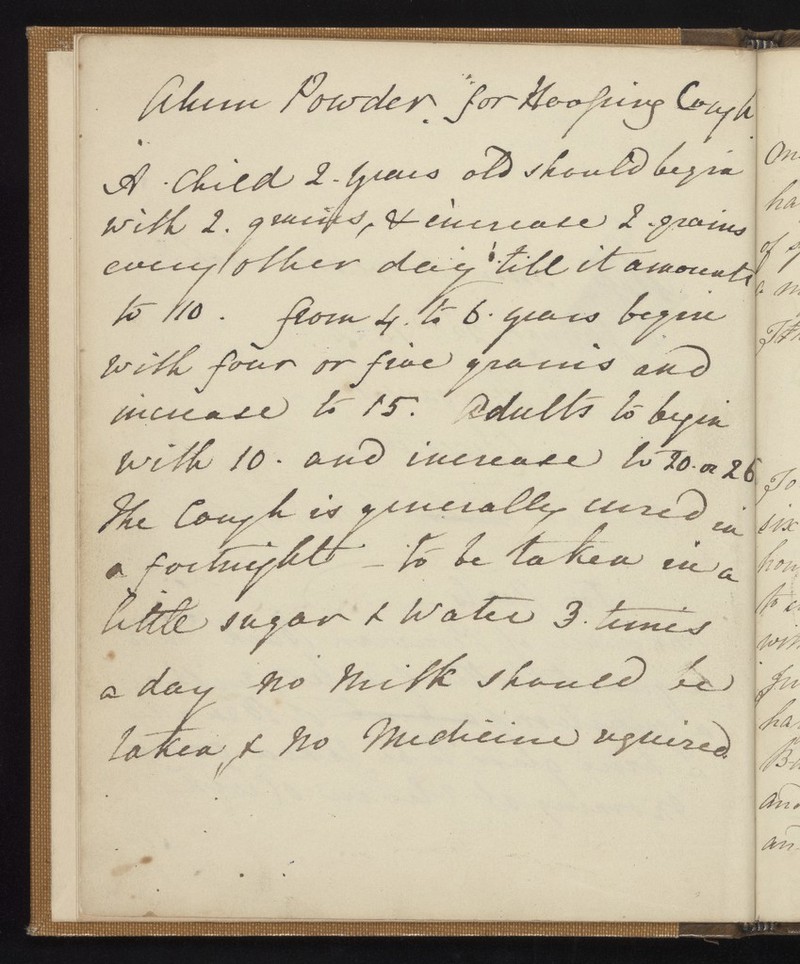 Alum Powder. for Hooping Cough
A Child 2 years old should begin
with 2. grains, & increase 2 grains
every other day 'till it amounts
to 10. from 4. to 6. years begin
with four or five grains and
increase to 15. Adults to begin
with 10. and increase to 20. or 26
The Cough is generally cured in
a fortnight - to be taken in a
little sugar & Water 3. times
a day no Milk should be
taken, & No Medicine required
On
ha
of
a m
To
six
hou
to
with
ha
and
an